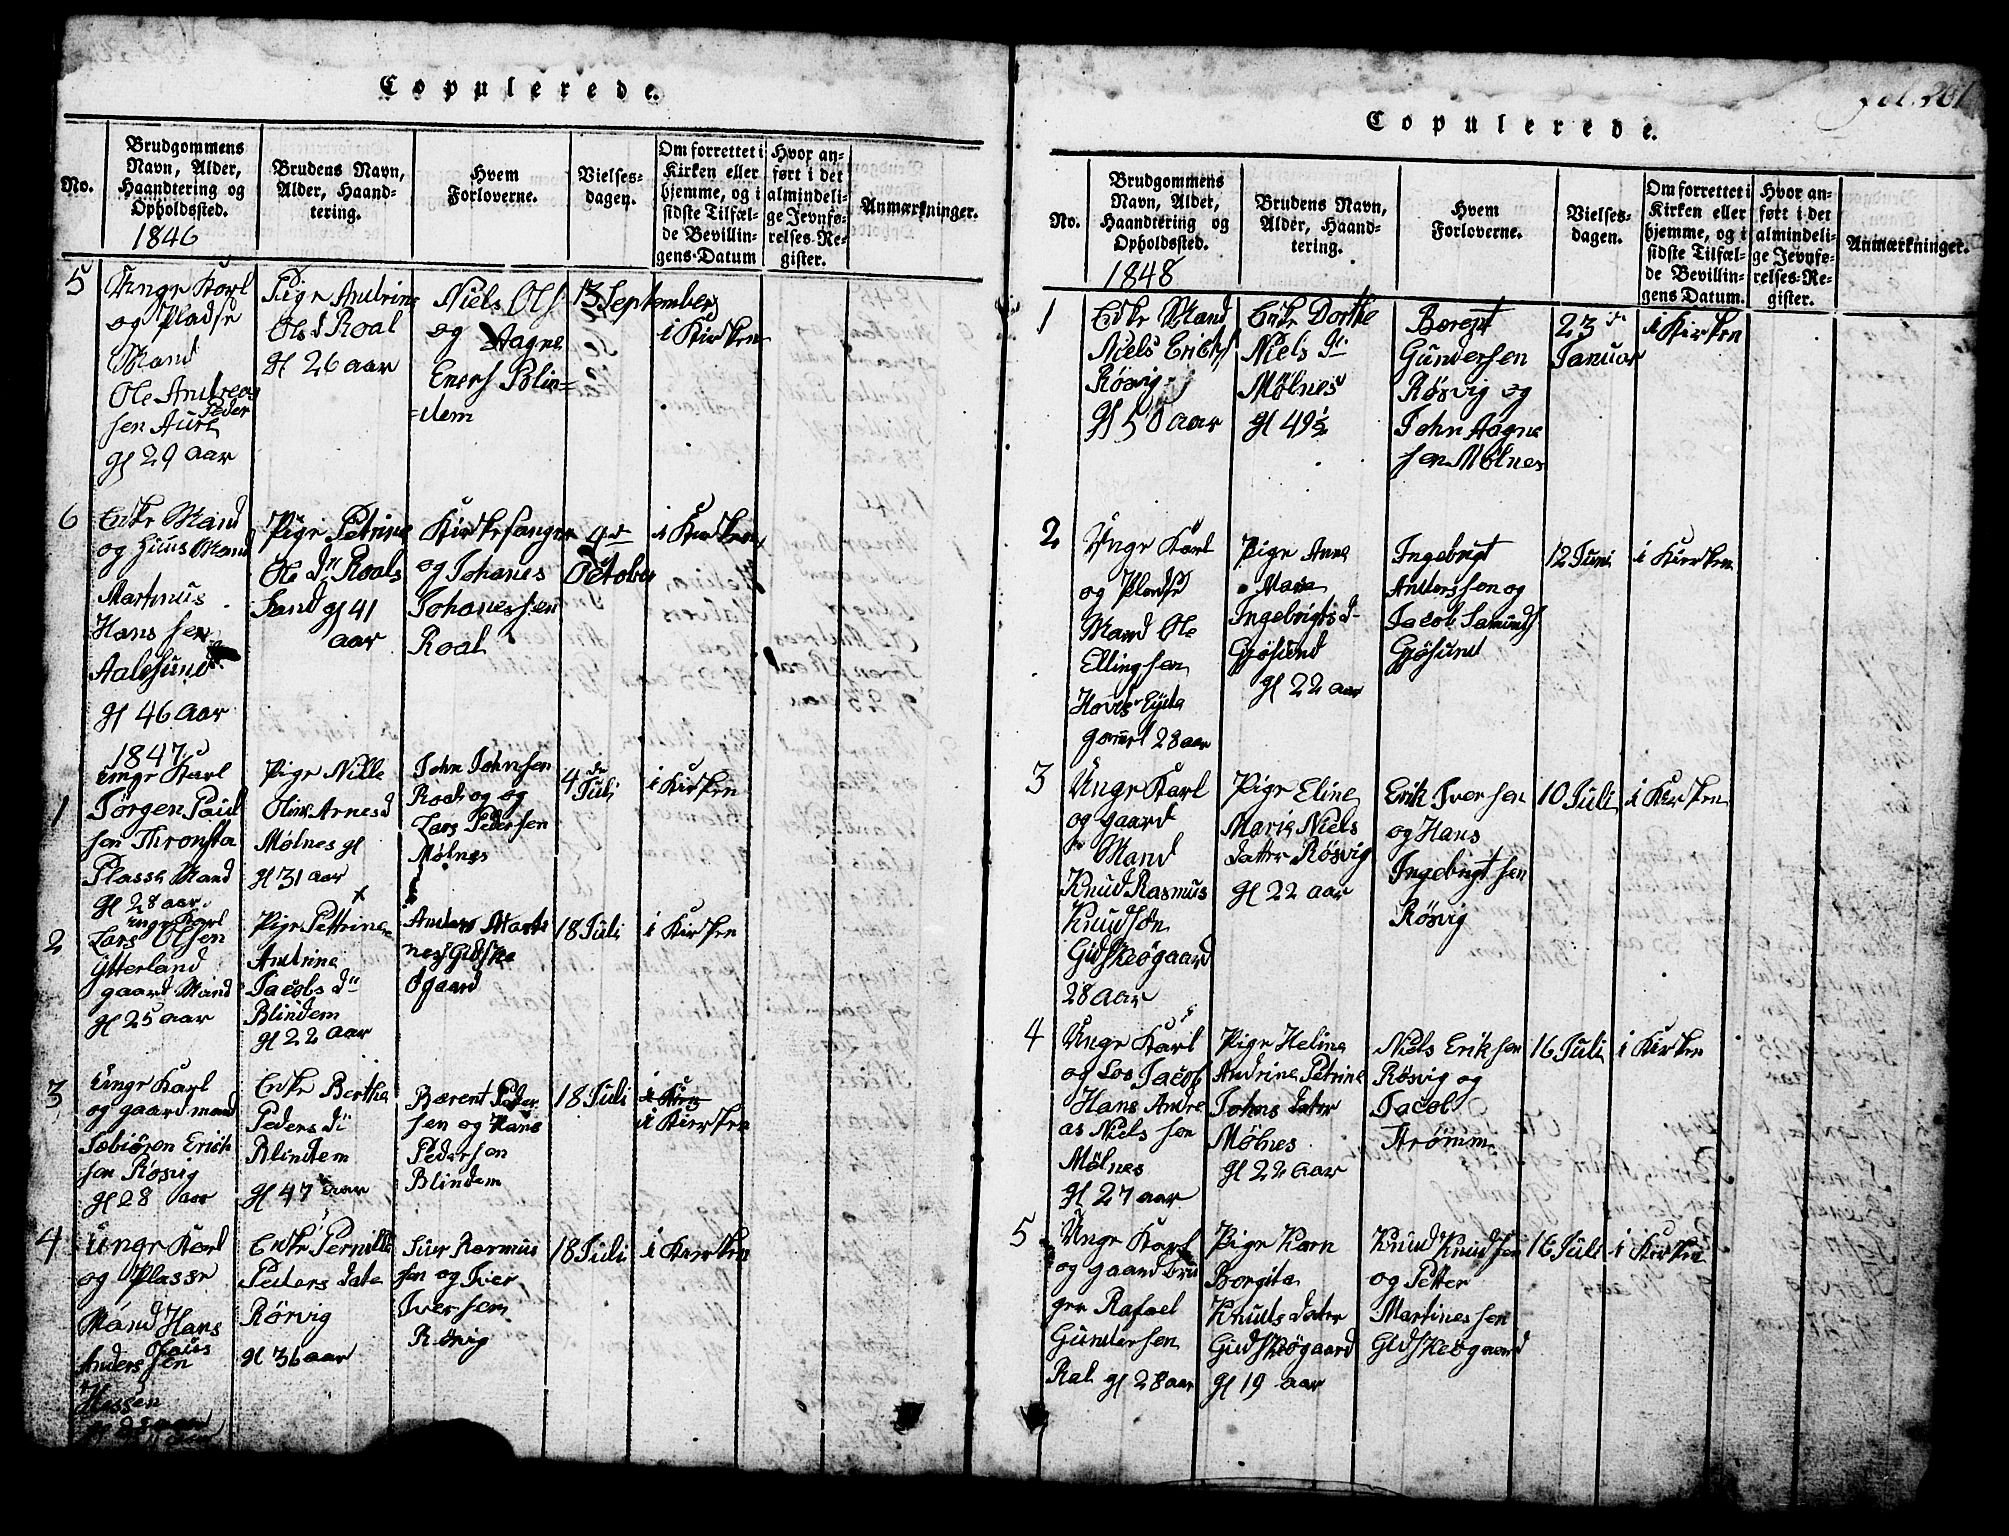 Copulerede.
No.
Brudgommens
Navn, Alder,
Haandtering og
Opholdssted.
1846
Brudens Navn,
Alder, Haand-
tering.
Hvem
Forloverne.
Vielses-
dagen.
Om forrettet i
Kirken eller
hjemme, og i
sidste Tilfæl-
de Bevillin-
gens Datum
Hvor an-
ført i det
almindeli-
ge Jevnfø-
relses-Re-
gister.
Anmærkninger.
5
Unge Karl
og Pladse
Mand
Ole Andreas
Peder
sen Aure
gl 29 aar
Pige Andrine
Ols d Roal
gl 26 aar
Niels Ols
og Aagne
Eners Blin=
=dem
13 September
i Kirken
6
Enke Mand
og Huus Mand
Martinus
Hans sen
Aalesund
gl 46 aar
Pige Petrine
Ole dr Roals
Sand gl 41
aar
Kirkesanger
og Johanes
Johanessen
Roal
4de
October
i Kirken
1847
1
unge Karl
Jørgen Paul
sen Thronsta
Plasse Mand
gl 28 aar
Pige Nille
Oline Arnesd
Mølnes gl
gl 31 aar
John Johnsen
Roal og og
Lars Pedersen
Mølnes
4 de
Juli
i Kirken
2
unge Karl
Lars Olsen
Ytterland
gaard Mand
gl 25 aar
Pige Pettrine
Andrine
Jacobs dr
Blindem
gl 22 aar
Anders Marti
nes Gidske
øgaard
18 Juli
i Kirken
3
Unge Karl
og gaard mand
Sebiören Erich
sen Rösvig
gl 28 aar
Enke Berthe
Peders dr
Blindem
gl 47 aar
Bærent Peder
sen og Hans
Pedersen
Blindem
18 Juli
i Kirken
4
Unge Karl
og Plasse
Mand Hans
Olaus
Anderssen
Hessen
Enke Pernille
Peders date
Rörvig
gl 36 aar
Siver Rasmus
sen og Iver
Iversen
Rörvig
18 Juli
i Kirken
fol. 201
Copulerede.
No.
Brudgommens
Navn, Alder,
Haandtering og
Opholdssted.
1848
Brudens Navn,
Alder, Haand-
tering.
Hvem
Forloverne.
Vielses-
dagen.
Om forrettet i
Kirken eller
hjemme, og i
sidste Tilfæl-
de Bevillin-
gens Datum.
Hvor an-
ført i det
almindeli-
ge Jevnfø-
relses-Re-
gister.
Anmærkninger.
1
Enke Mand
Niels Erichs
Rösvig
gl 50 aar
Enke Dorthe
Niels dr
Mölnes
gl 49½
Berept
Gundersen
Rösvig og
John Aagne
sen Mölnes
23 de
Januar
i Kirken
2
Unge Karl
og Pladse
Mand Ole
Ellingsen
Hovds Eyda
gamel 28 aar
Pige Anne
Maria
Ingebrigts d
Gjösund
gl 22 aar
Ingebrigt
Anderssen og
Jacob Samunds
Gjösund
12 Juni
i Kirken
3
Unge Karl
og gaard
Mand
Knud Rasmus
Knudsøn
Gidskeögaard
28 aar
Pige Eline
Marie Niels
datter Rösvig
gl 22 aar
Erik Iversen
og Hans
Ingebrigt sen
Rösvig
10 Juli
i Kirken
4
Unge Karl
og Los Jacob
Hans Andre
as Niels sen
Mölnes
gl 27 aar
Pige Heline
Andrine Petrine
Johns dater
Mölnes
gl 22 aar
Niels Eriksen
Rösvig og
Jacob
Strømm
16 Juli
i Kirken
5
Unge Karl
og gaard bru
ger Rafael
Gundersen
Ral gl 28 aar
Pige Karn
Borgita
Knuds dater
Gidskeögaard
gl 19 aar
Knud Knudsen
og Petter
Martinessen
Gidskeögaard
16 Juli
i Kirken